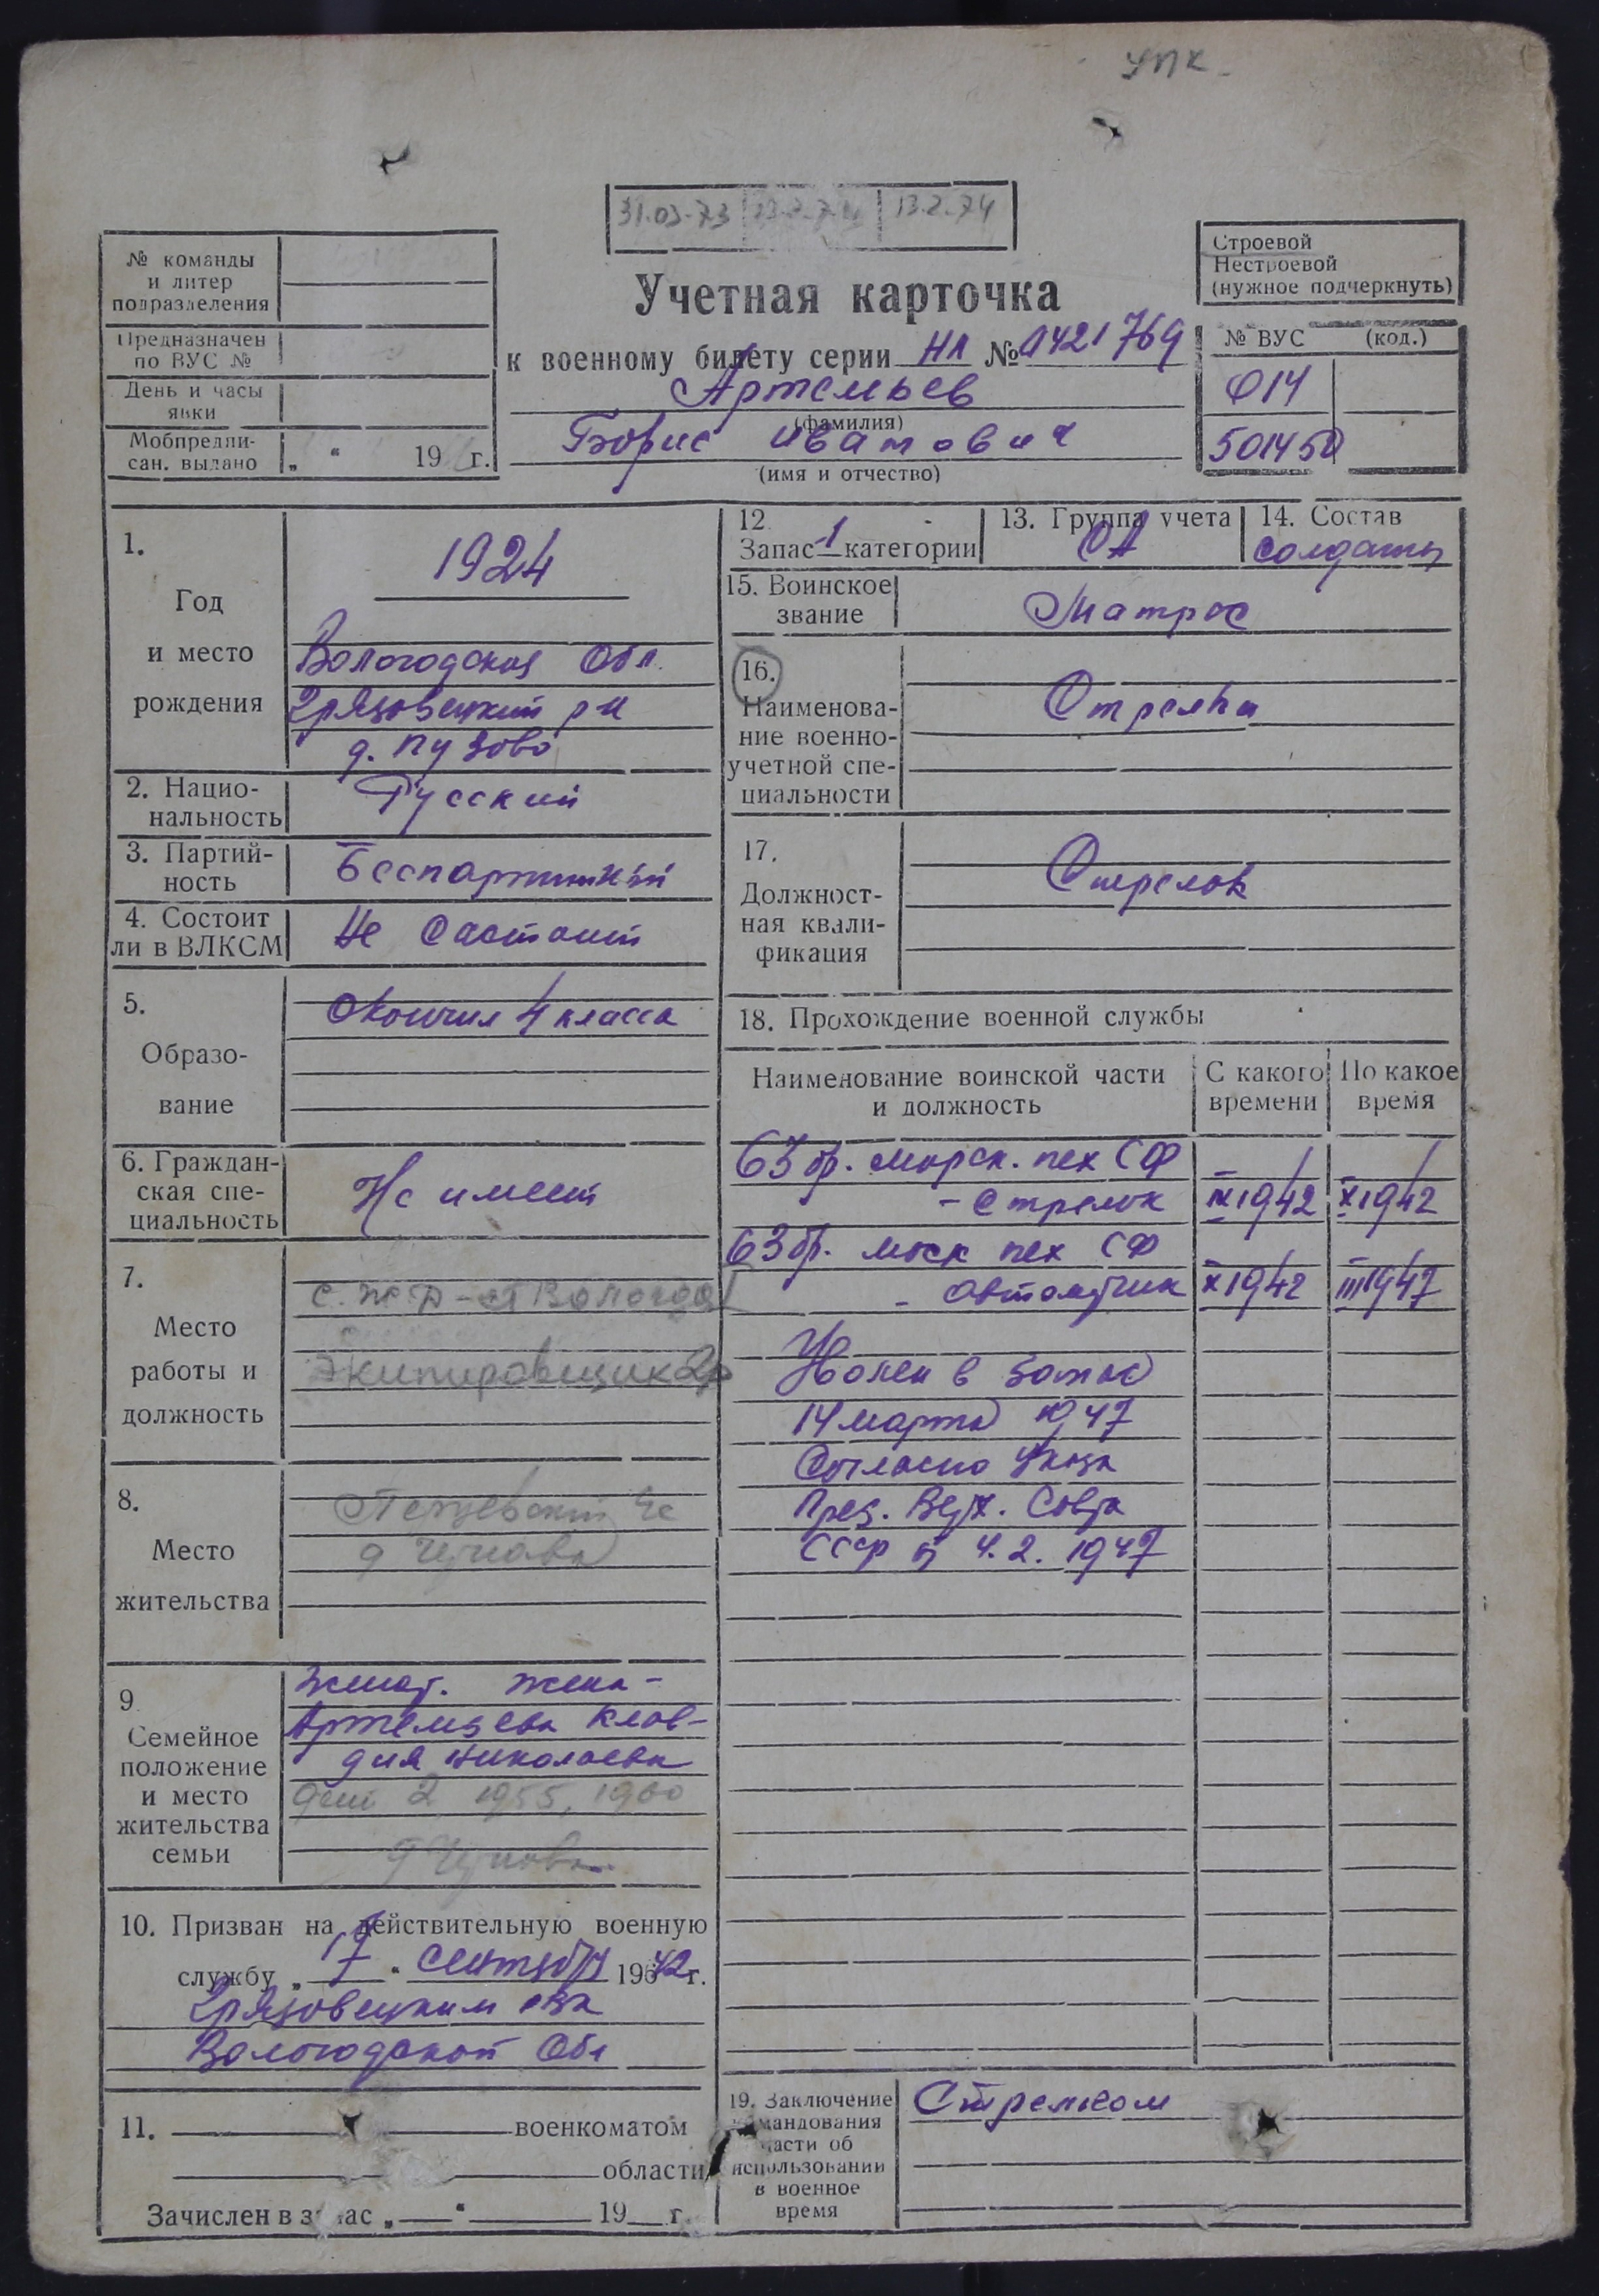 УПК
31.03.73 13.2.74
№ команды
и литер
подразделения
Предназначен
по ВУС №
День и часы
явки
Мобпредпи-
сан. выдано „ “ 19 г.
Учетная карточка
к военному билету серии НЛ № 0421769
Артемьев
(фамилия)
Борис Иванович
(имя и отчество)
Строевой
Нестроевой
(нужное подчеркнуть)
№ ВУС (код.)
014
501450
1.
Год
и место
рождения
1924
Вологодская Обл.
Грязовецкий р-н
д. Пузово
2. Нацио-
нальность
Русский
3. Партий-
ность
Беспартийный
4. Состоит
ли в ВЛКСМ
Не Састоит
5.
Образо-
вание
Окончил 4 класса
6. Граждан-
ская спе-
циальность
Не имеет
7.
Место
работы и
должность
с. ж. д - ст Вологда
Экипировщик 2р
8.
Место
жительства
9
Семейное
положение
и место
жительства
семьи
Женат. Жена-
Артемьева Клав-
дия Николаевна
дети 2 1955, 1960
10. Призван на действительную военную
службу „ 17 “ Сентября 1942 г.
Грязовецким рвк
Вологодской Обл
11. военкоматом
области
Зачислен в запас „ “ 19 г.
12
Запас 1 категории
13. Группа учета
СА
14. Состав
Солдаты
15. Воинское
звание
Матрос
16.
Наименова-
ние военно-
учетной спе-
циальности
Стрелки
17.
Должност-
ная квали-
фикация
Стрелок
18. Прохождение военной службы
Наименование воинской части
и должность
С какого
времени
По какое
время
63 бр. морск. пех СФ
- стрелок IX 1942 X 1942
63 бр. моск пех СФ
- автоматчик X 1942 III 1947
Уволен в запас
14 марта 1947
Согласно Указа
През. Верх. Совта
СССР от 4.2.1947
19. Заключение
командования
части об
использовании
в военное
время
Стрелком